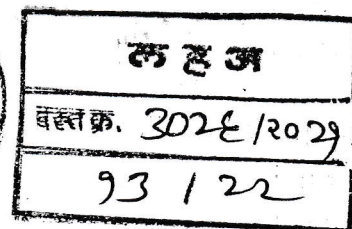 ल ह अ
दस्त क्र. ३०२६/२०२१
१३ / २२